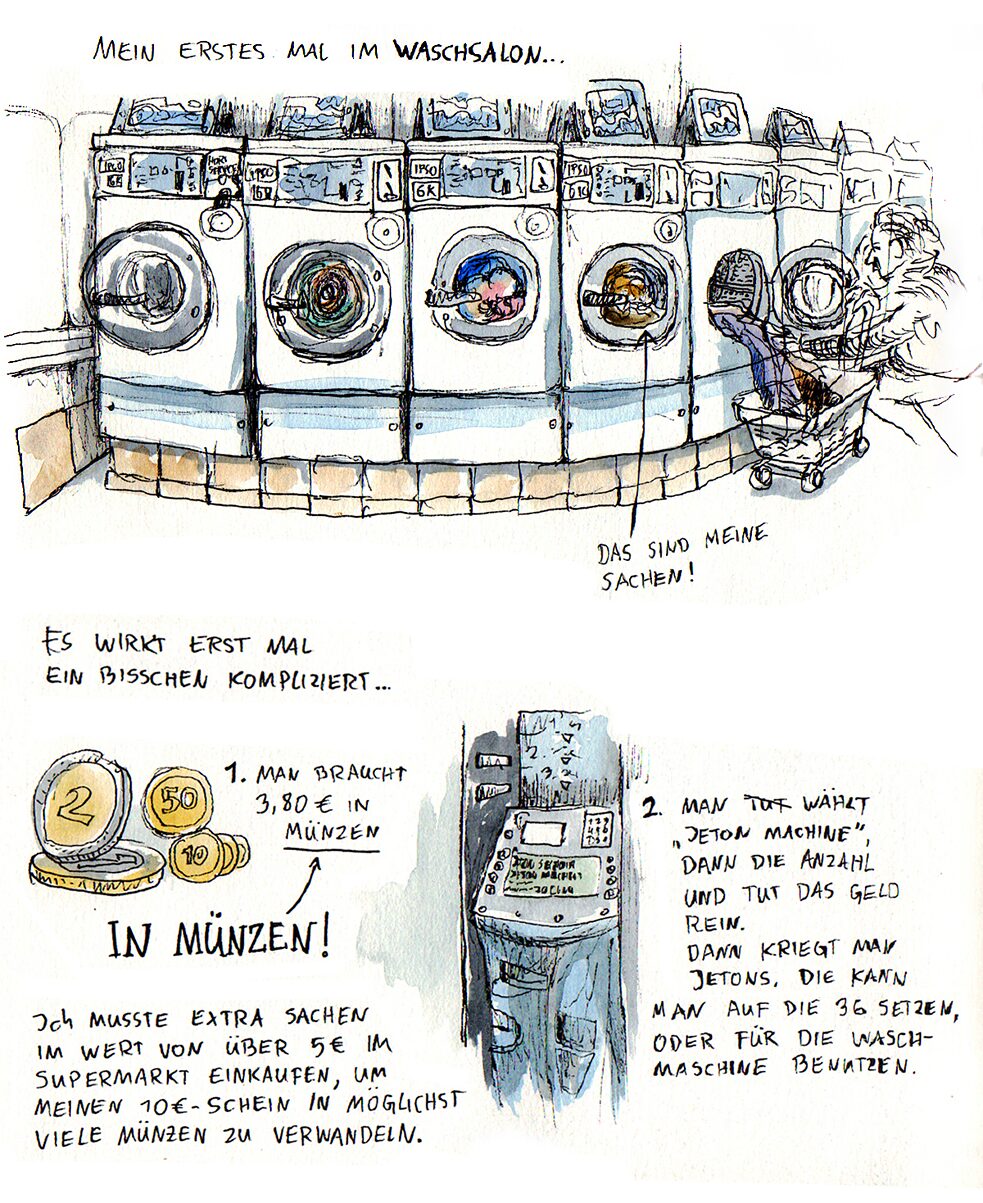 MEIN ERSTES MAL IM WASCHSALON...
IPSO
6K
HORS
SERVICE
IPSO
16K
IPSO
6K
IPSO
6K
DAS SIND MEINE
SACHEN!
ES WIRKT ERST MAL
EIN BISSCHEN KOMPLIZIERT...
2
50
10
1. MAN BRAUCHT
3,80 € IN
MÜNZEN
IN MÜNZEN!
ICH MUSSTE EXTRA SACHEN
IM WERT VON ÜBER 5€ IM
SUPERMARKT EINKAUFEN, UM
MEINEN 10€-SCHEIN IN MÖGLICHST
VIELE MÜNZEN ZU VERWANDELN.
1.
2.
3.
2. MAN TUT WÄHLT
„JETON MACHINE",
DANN DIE ANZAHL
UND TUT DAS GELD
REIN.
DANN KRIEGT MAN
JETONS, DIE KANN
MAN AUF DIE 36 SETZEN,
ODER FÜR DIE WASCH-
MASCHINE BENUTZEN.